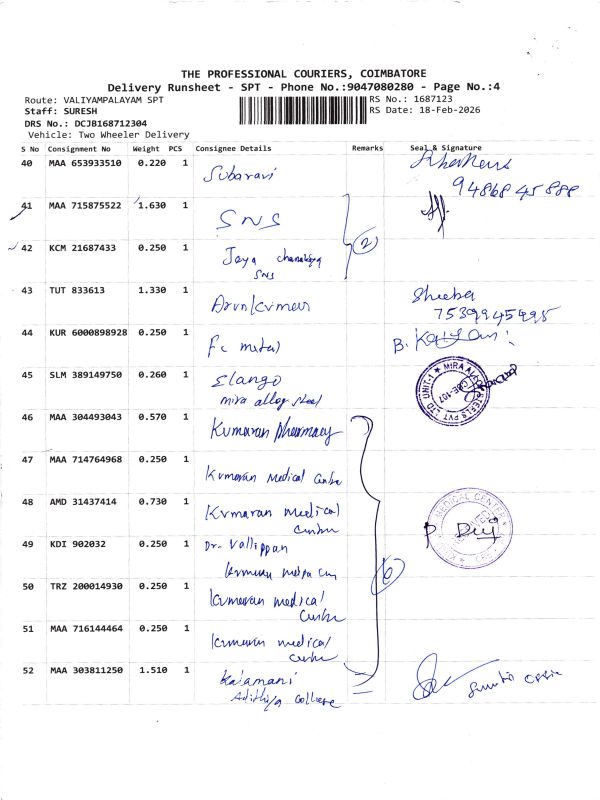 THE PROFESSIONAL COURIERS, COIMBATORE
Delivery Runsheet - SPT - Phone No.:9047080280 - Page No.:4
Route: VALIYAMPALAYAM SPT
RS No.: 1687123
Staff: SURESH
RS Date: 18-Feb-2026
DRS No.: DCJB168712304
Vehicle: Two Wheeler Delivery
S No Consignment No Weight PCS Consignee Details Remarks Seal & Signature
40 MAA 653933510 0.220 1 Subaravi
9486845888
41 MAA 715875522 1.630 1 SNS
2
42 KCM 21687433 0.250 1 Jaya
SNS
43 TUT 833613 1.330 1 Arunkumar Sheeba
7539945495
44 KUR 6000898928 0.250 1 Fc metal B. Kalyani
45 SLM 389149750 0.260 1 Elango
mira alloy steel
MIRA ALLOY STEELS PVT LTD UNIT-1
CBE-107
46 MAA 304493043 0.570 1 Kumaran Pharmacy
47 MAA 714764968 0.250 1 Kumaran Medical Center
48 AMD 31437414 0.730 1 Kumaran medical
Center
MEDICAL CENTER
49 KDI 902032 0.250 1 Dr. Vallippan
Kumaran
6
50 TRZ 200014930 0.250 1 Kumaran medical
Center
51 MAA 716144464 0.250 1 Kumaran medical
Center
52 MAA 303811250 1.510 1 Kalamani
Adithya College